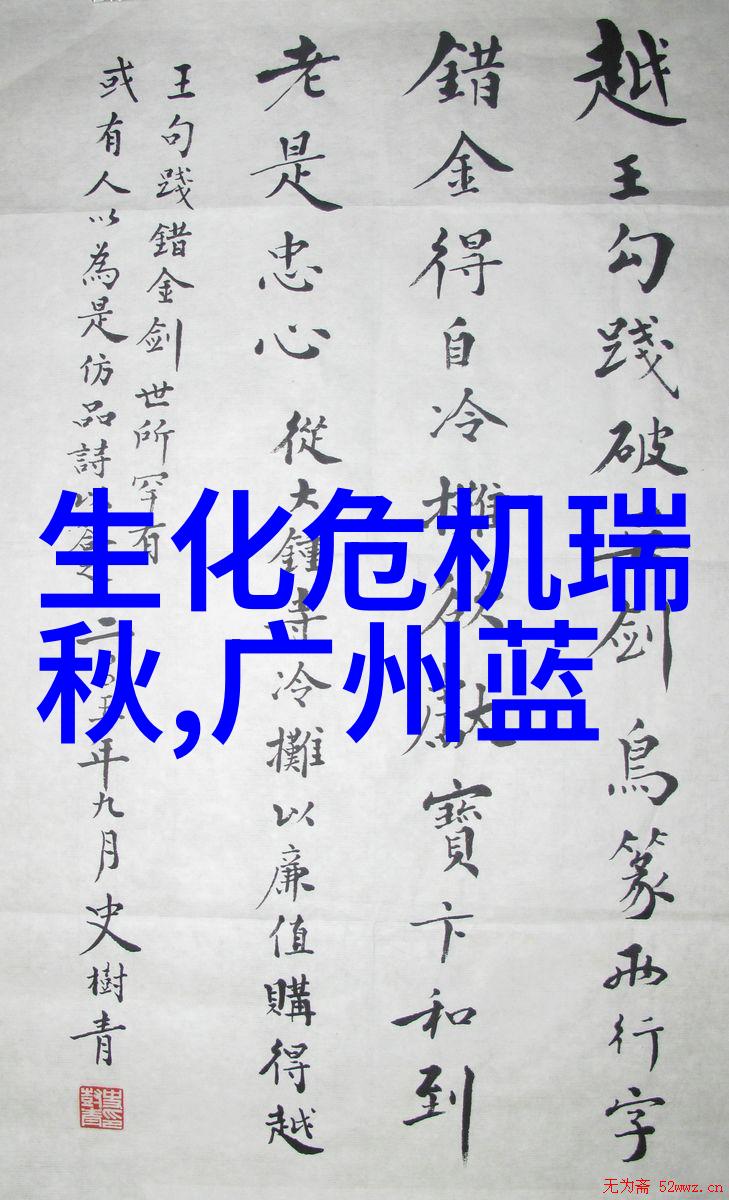 越王勾踐破剑鳥篆兩行字
錯金得自冷攤欲獻寶卞和到
老是忠心 從大鍾寺冷攤以廉值購得越
王句踐錯金剑世所罕有
或有人以為是仿品詩以之二〇〇五年九月史樹青
生化危机瑞
秋,广州蓝
无为斋 52wwz.cn